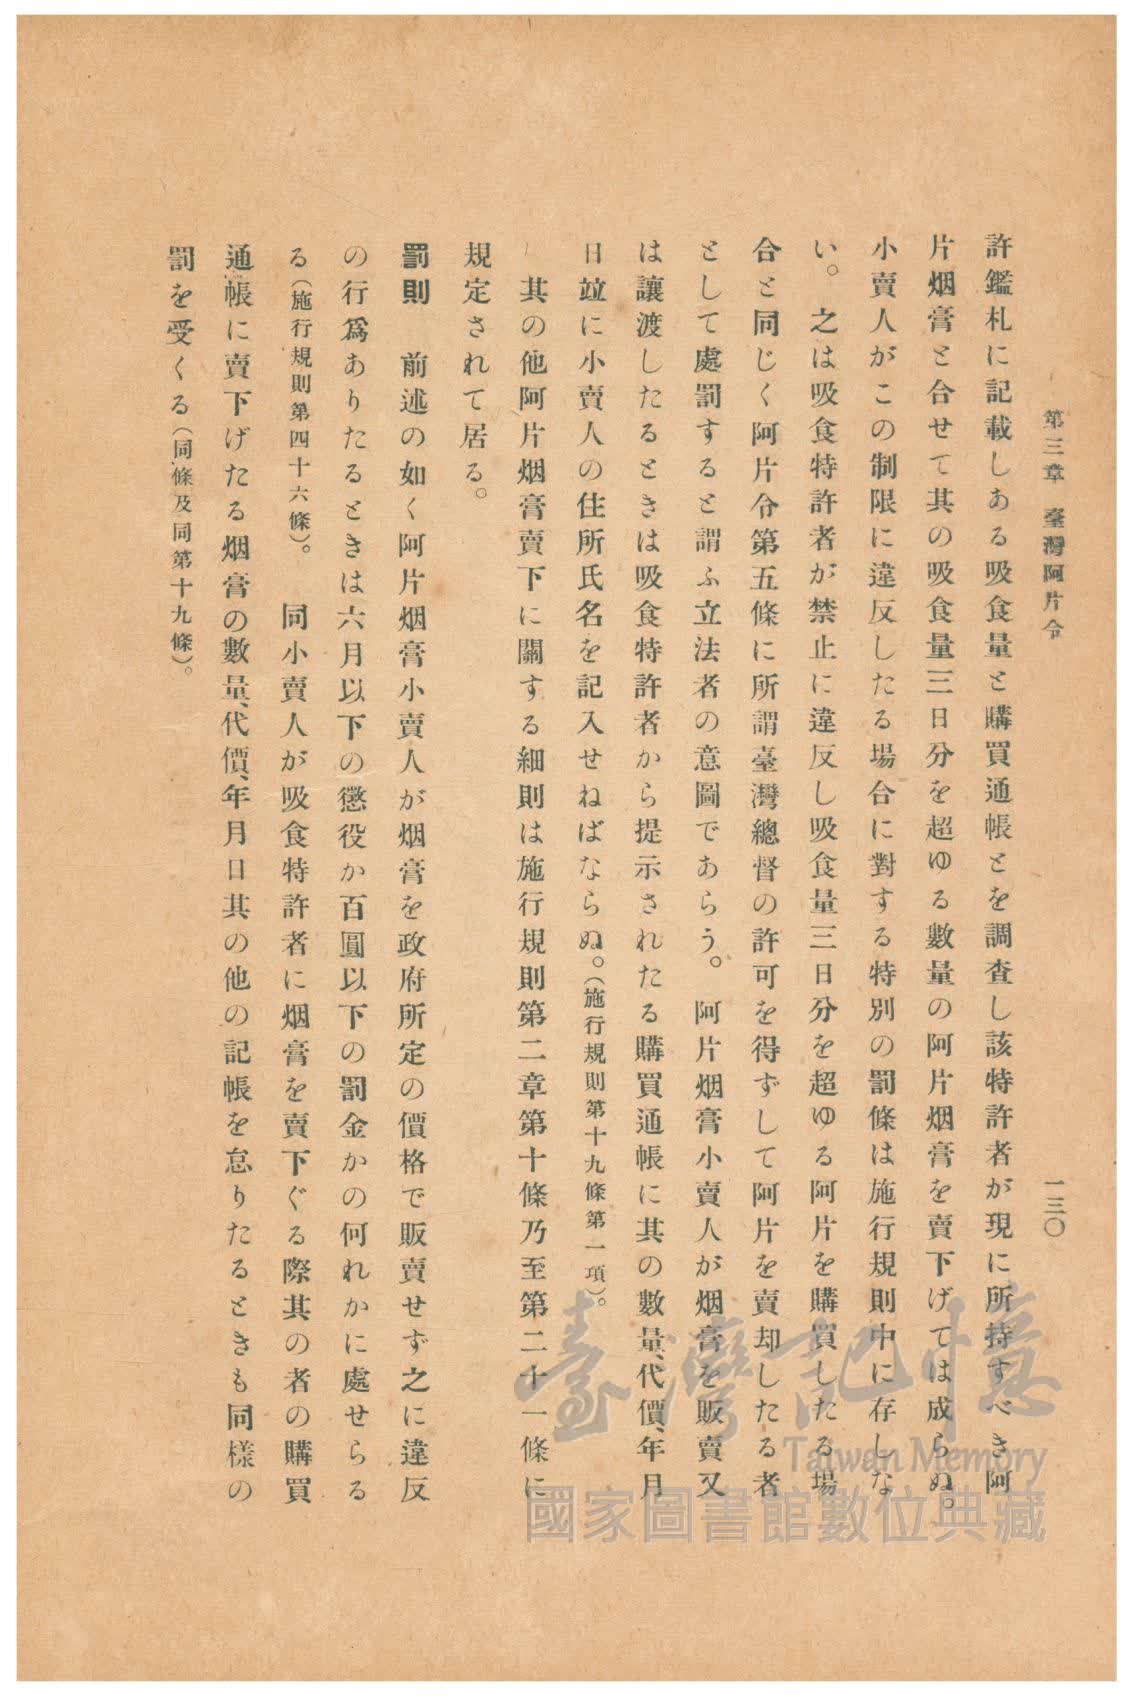 第三章　臺灣阿片令　一三〇
許鑑札に記載しある吸食量と購買通帳とを調査し該特許者が現に所持すべき阿
片烟膏と合せて其の吸食量三日分を超ゆる數量の阿片烟膏を賣下げては成らぬ。
小賣人がこの制限に違反したる場合に對する特別の罰條は施行規則中に存しな
い。之は吸食特許者が禁止に違反し吸食量三日分を超ゆる阿片を購買したる場
合と同じく阿片令第五條に所謂臺灣總督の許可を得ずして阿片を賣却したる者
として處罰すると謂ふ立法者の意圖であらう。阿片烟膏小賣人が烟膏を販賣又
は讓渡したるときは吸食特許者から提示されたる購買通帳に其の數量、代價、年月
日竝に小賣人の住所氏名を記入せねばならぬ。（施行規則第十九條第一項）。
其の他阿片烟膏賣下に關する細則は施行規則第二章第十條乃至第二十一條に
規定されて居る。
罰則　前述の如く阿片烟膏小賣人が烟膏を政府所定の價格で販賣せず之に違反
の行爲ありたるときは六月以下の懲役か百圓以下の罰金かの何れかに處せらる
る（施行規則第四十六條）。　同小賣人が吸食特許者に烟膏を賣下ぐる際其の者の購買
通帳に賣下げたる烟膏の數量、代價、年月日其の他の記帳を怠りたるときも同樣の
罰を受くる（同條及同第十九條）。
臺灣記憶
Taiwan Memory
國家圖書館數位典藏